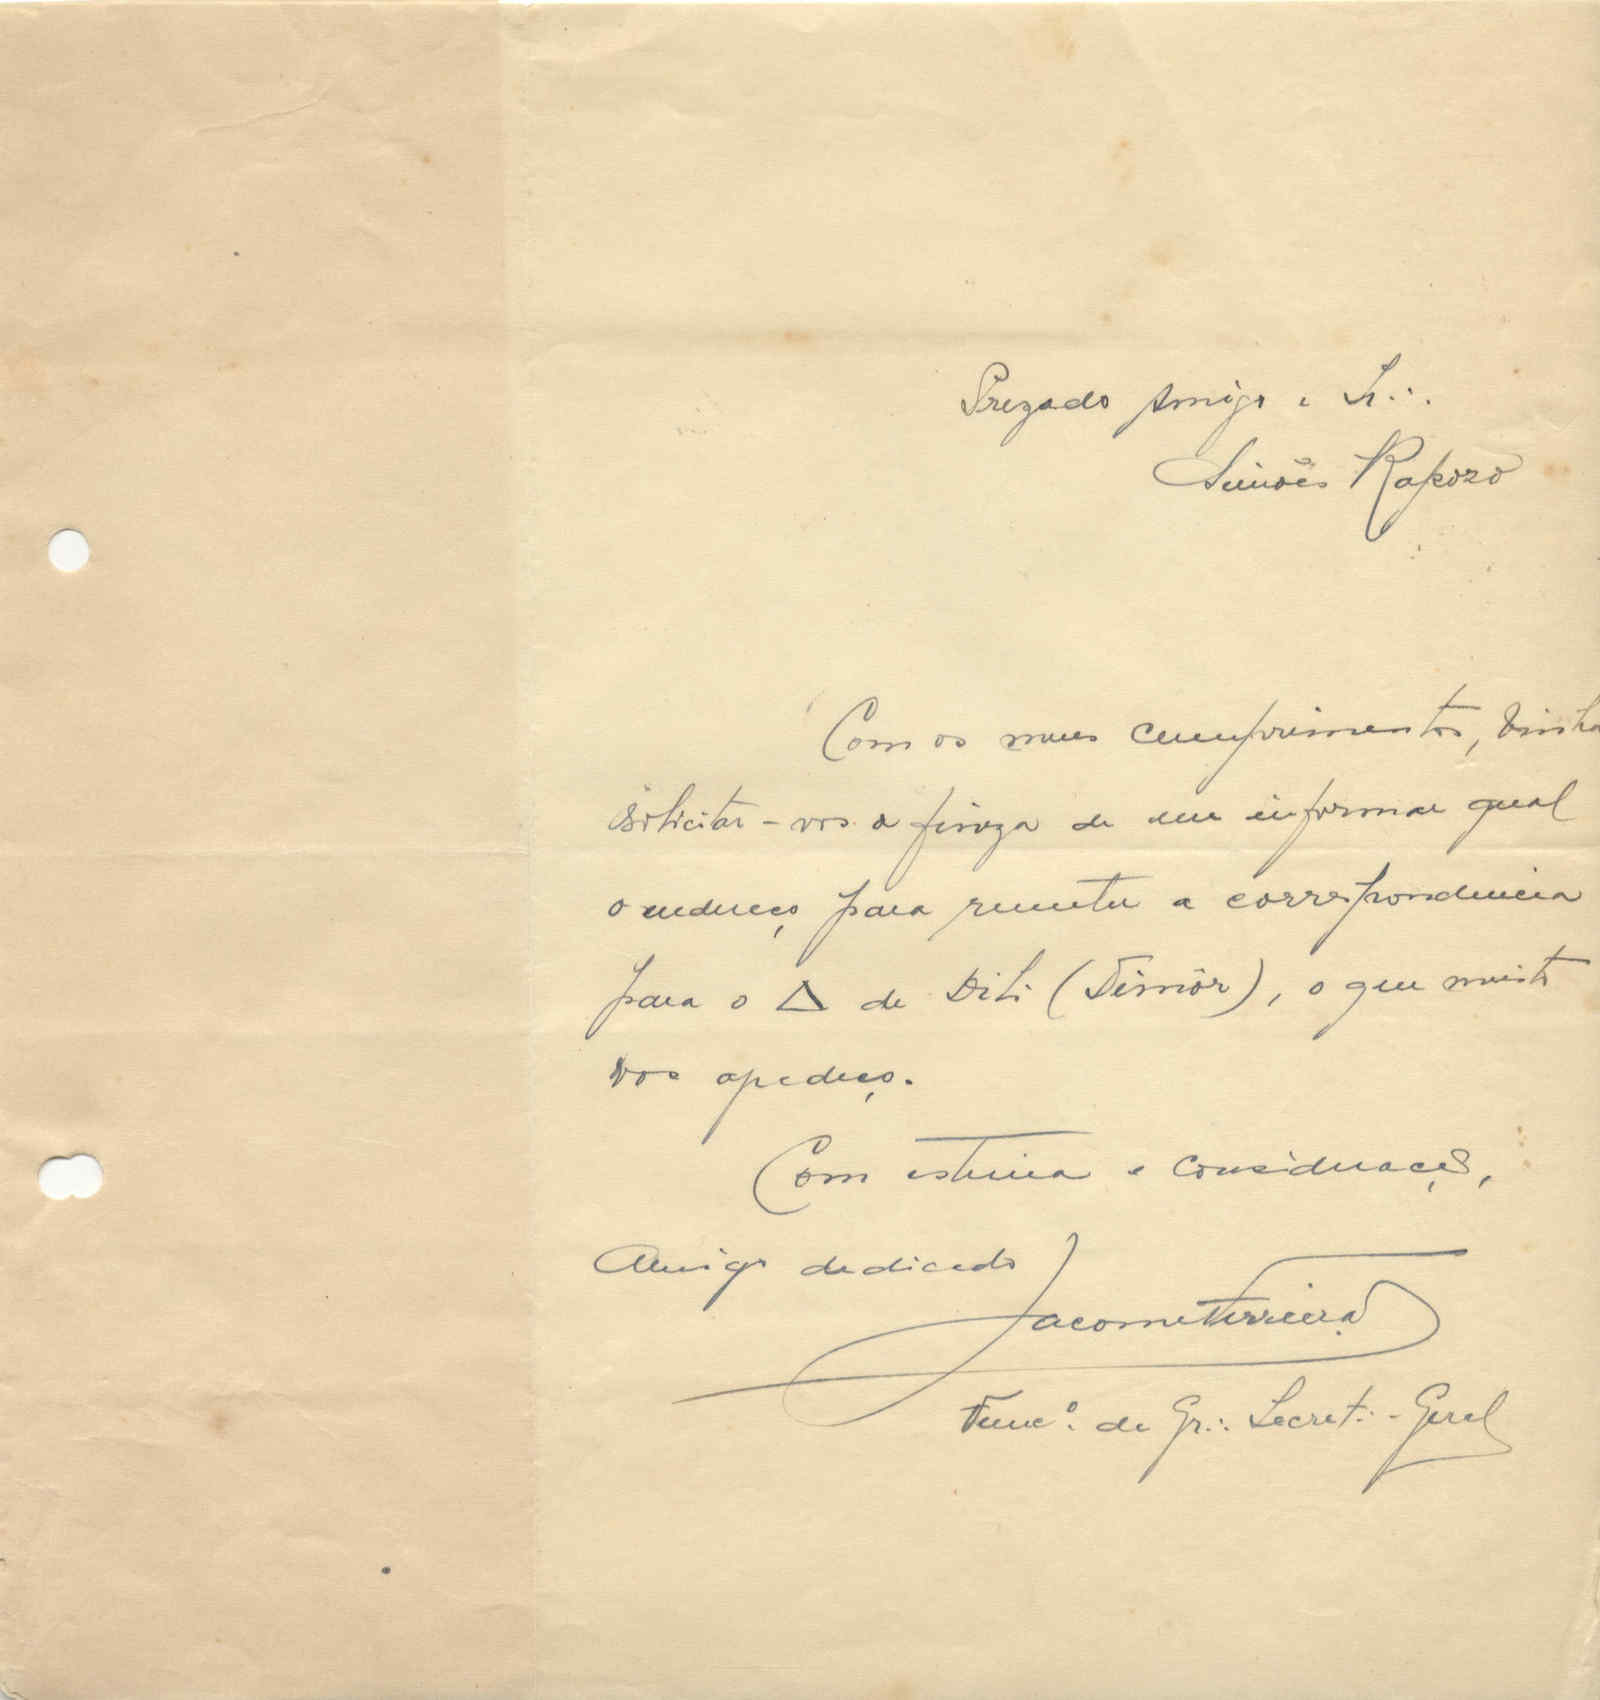 Prezado Amigo e Ir∴
Simões Raposo
Com os meus cumprimentos, vinha
solicitar-vos a fineza de me informar qual
o endereço para remeter a correspondencia
para o △ de Dili (Timôr), o que muito
vos agradeço.
Com estima e consideração,
Amigo dedicado
Jacome Ferreira
Funcº. da Gr∴ Secret∴-Geral